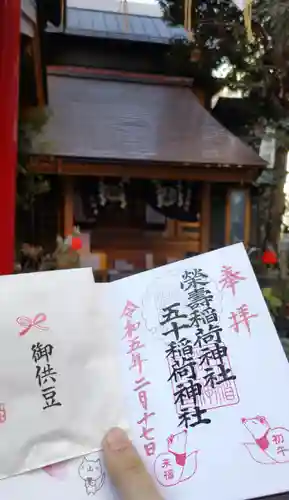 奉拝
榮壽稲荷神社
五十稲荷神社
令和五年二月十七日
初午
来福
御供豆